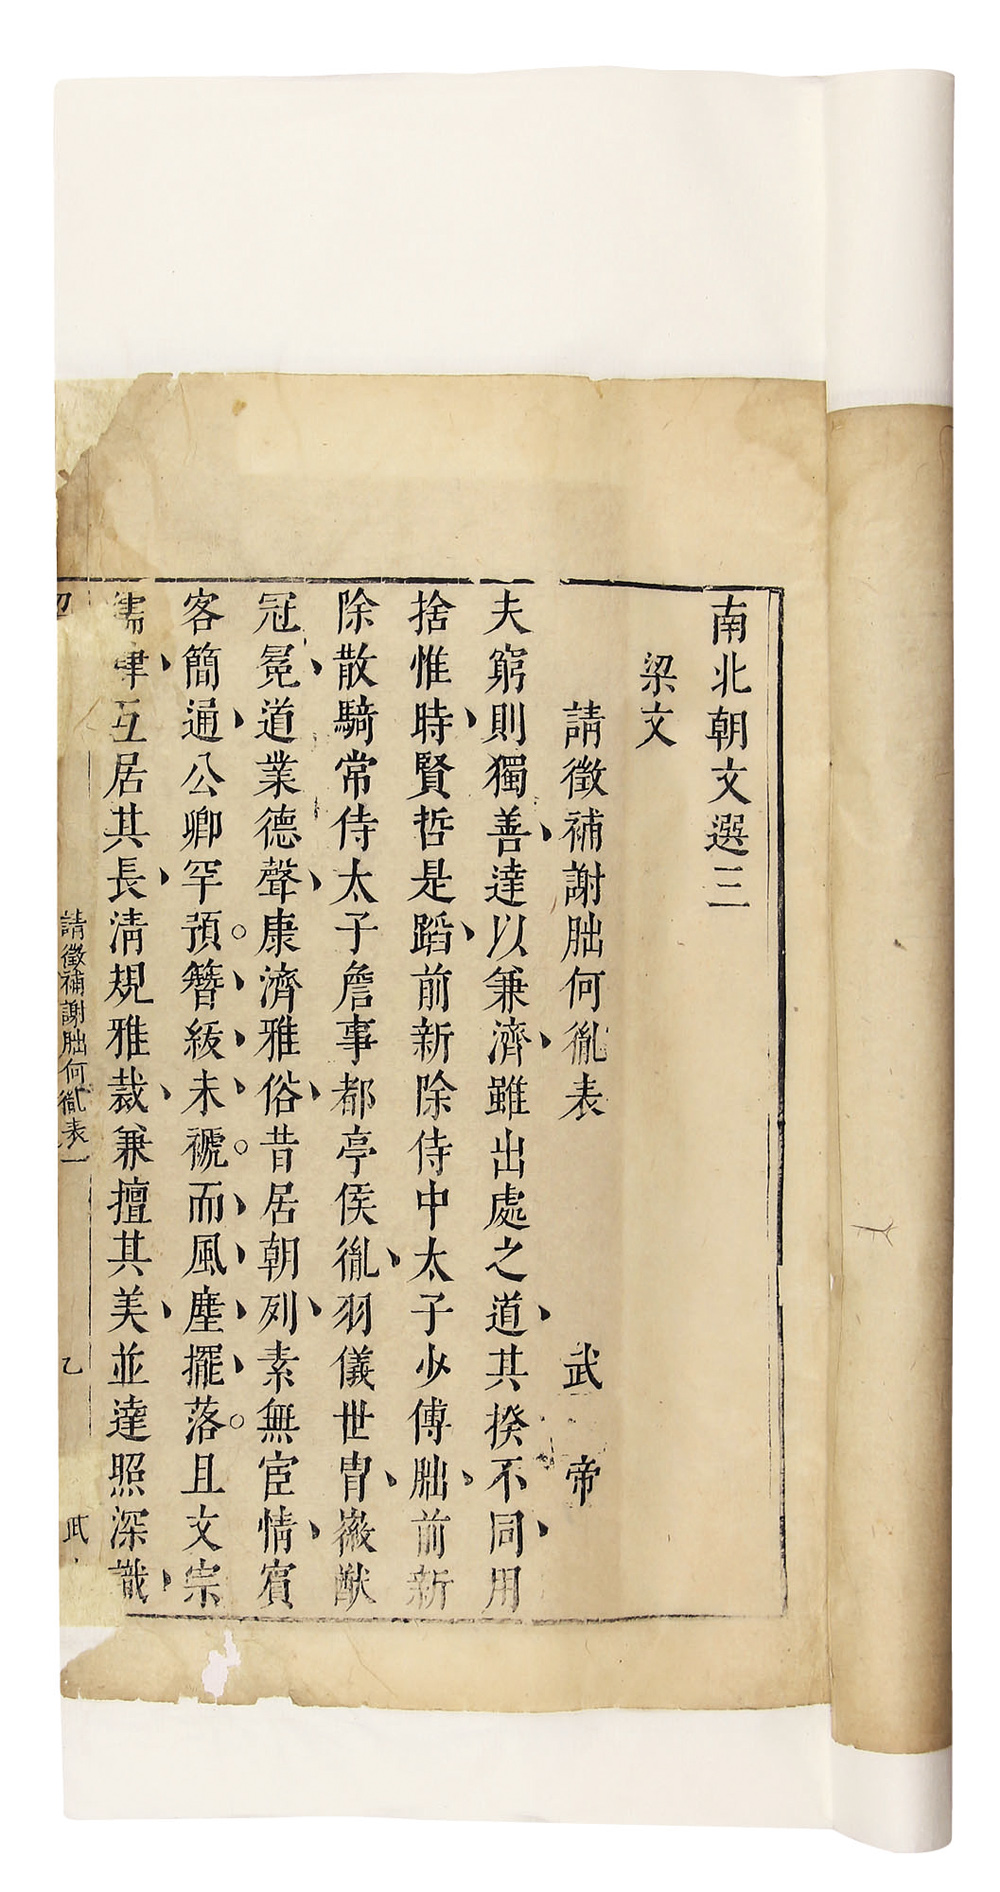 南北朝文選三
梁文
請徵補謝朏何胤表　武帝
夫窮則獨善達以兼濟雖出處之道其揆不同用
捨惟時賢哲是蹈前新除侍中太子少傅朏前新
除散騎常侍太子詹事都亭侯胤羽儀世胄徽猷
冠冕道業德聲康濟雅俗昔居朝列素無宦情賓
客簡通公卿罕預簪紱未褫而風塵擺落且文宗
儒肆互居其長清規雅裁兼擅其美並達照深識
請徵補謝朏何胤表一　乙　武